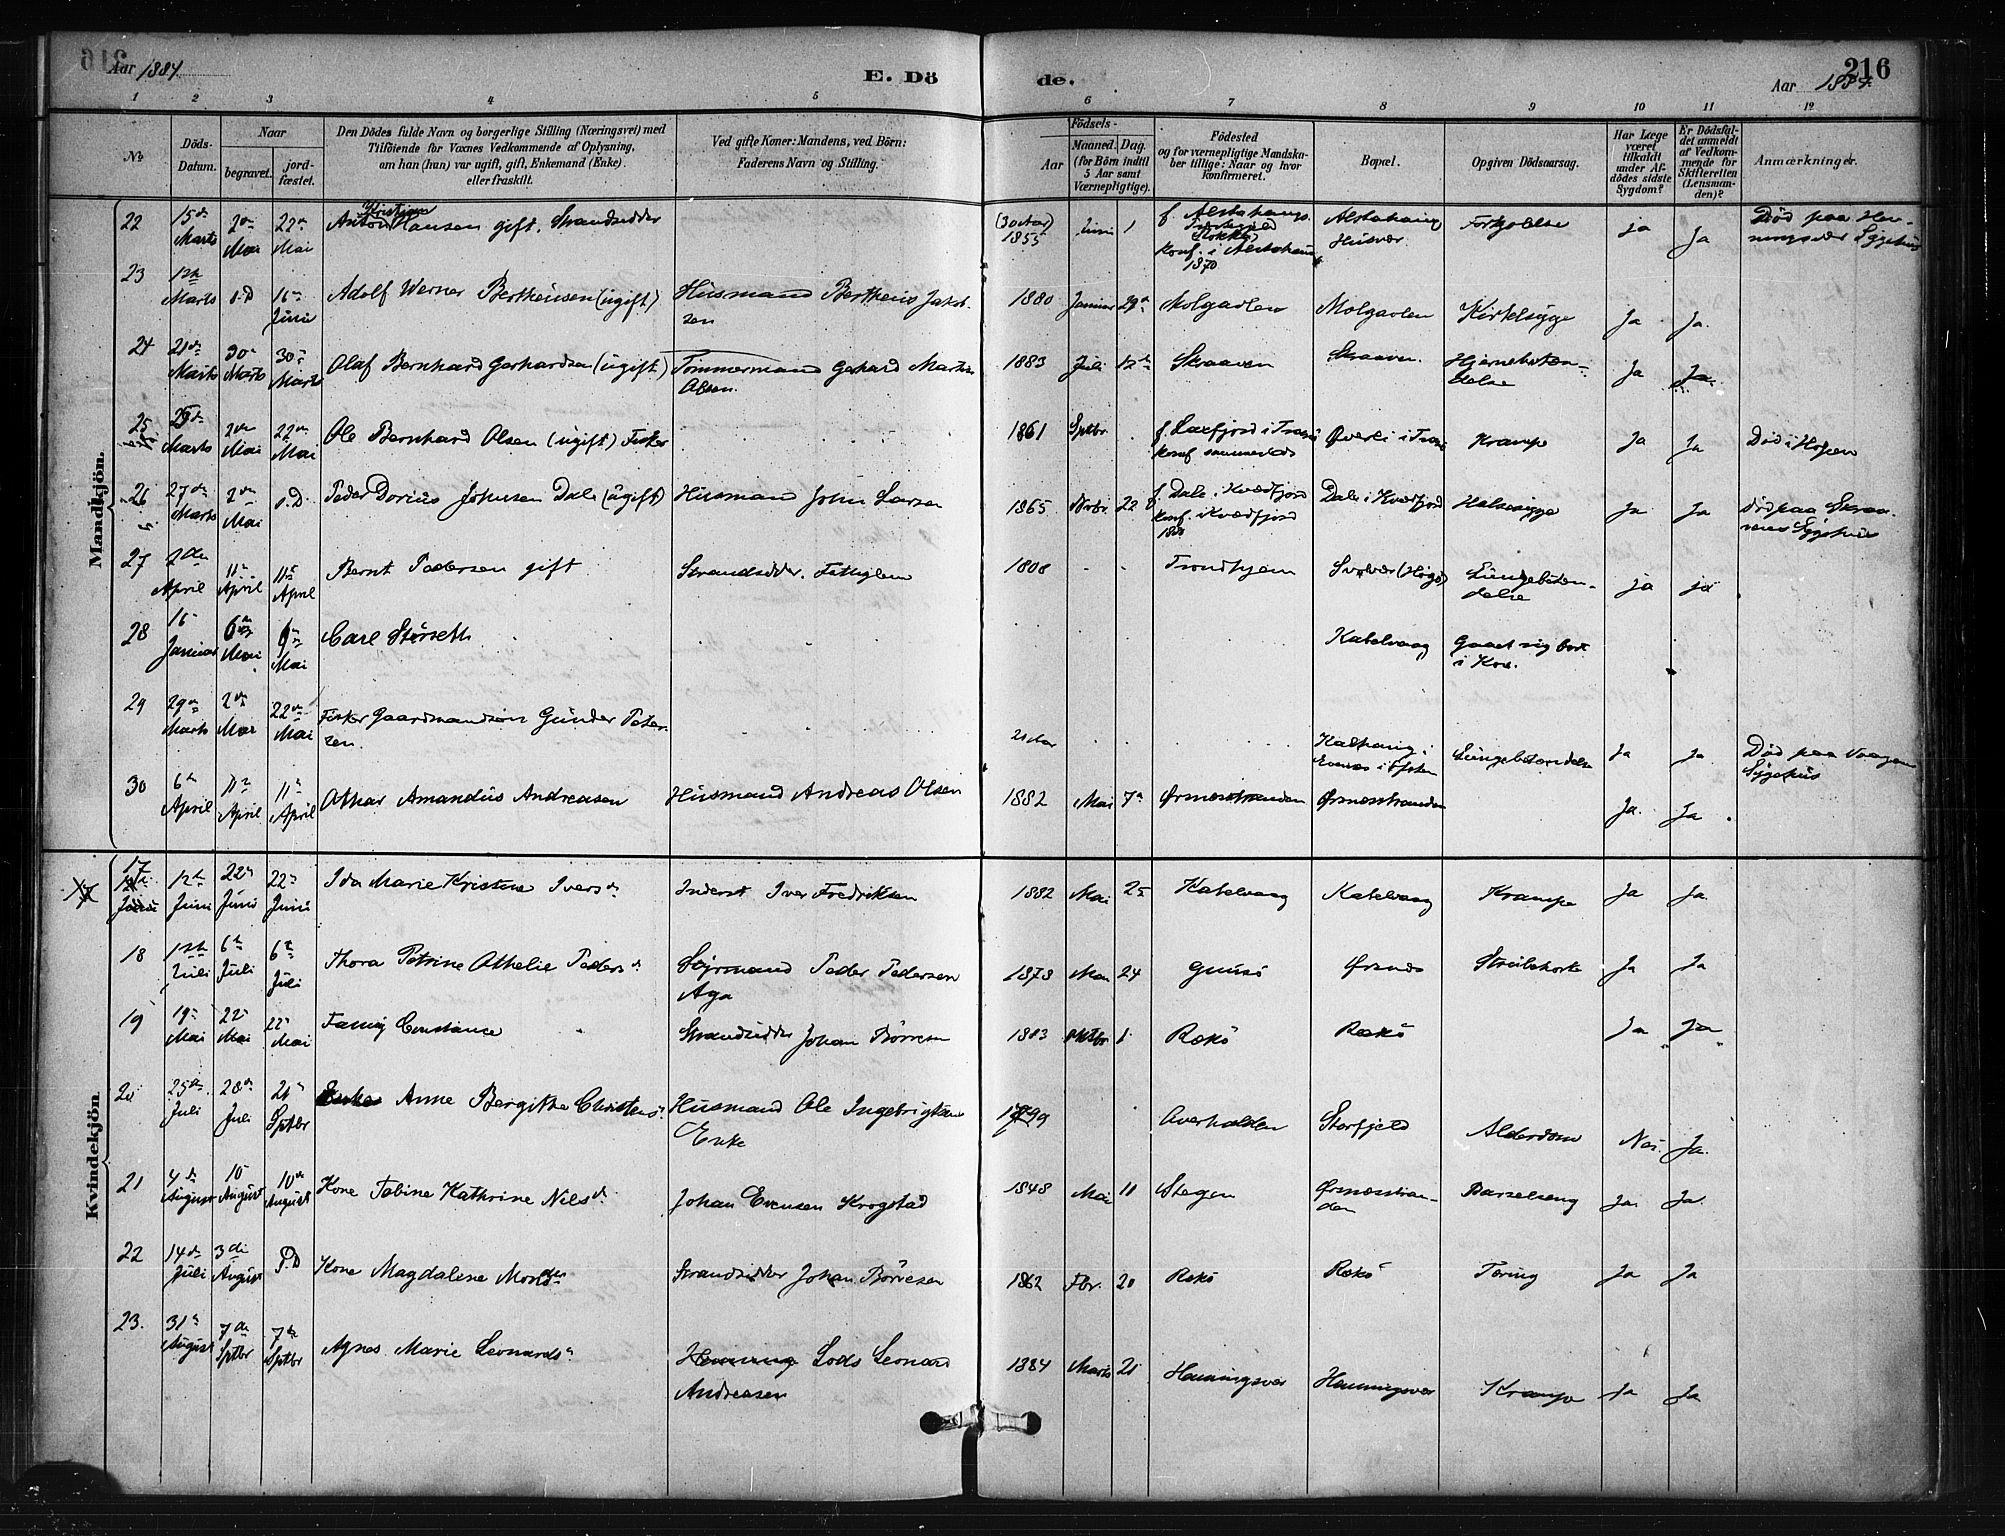 Aar 1884.
E. Dö
de.
216
Aar 1884.
1 2 3 4 5 6 7 8 9 10 11 12
№
Döds-
Datum.
Naar
begravet.
jord-
fæstet.
Den Dödes fulde Navn og borgerlige Stilling (Næringsvei) med
Tilföiende for Voxnes Vedkommende af Oplysning,
om han (hun) var ugift, gift, Enkemand (Enke).
eller fraskilt.
Ved gifte Koner: Mandens, ved Börn:
Faderens Navn og Stilling.
Födsels-
Aar
Maaned.
(for Börn indtil
5 Aar samt
Værnepligtige).
Dag.
Födested
og for værnepligtige Mandska-
ber tillige: Naar og hvor
konfirmeret.
Bopæl.
Opgiven Dödsaarsag.
Har Læge
været
tilkaldt
under Af-
dödes sidste
Sygdom?
Er Dödsfal-
det anmeldt
af Vedkom-
mende for
Skifteretten
(Lensman-
den)?
Anmærkninger.
Mandkjön.
22 15de Marts 2den Mai 22de Mai Anton Kristian Hansen gift. Strandsidder (30 Aar) 1853 Juni 1 f. Alstahaug konf. i Alstahaug 1870 Alstahaug Husvær Forkjølelse ja Ja Død paa Hen-
ningsvær Sygehus
23 12te Marts s.D 16de Juni Adolf Werner Bertheusen (ugift) Husmand Bertheus Jakob-
sen 1880 Januar 29de Molgavlen Molgavlen Kirtelsyge Ja Ja.
24 21de Marts 30te Marts 30te Marts Olaf Bernhard Gerhardsen (ugift) Tømmermand Gerhard Martin
Olsen. 1883 Juli 12te Skraaven Skraaven. Hjernebetæn-
delse Ja Ja.
25 Marts 2den Mai 22de Mai Ole Bernhard Olsen (ugift) Fisker 1861 Sptbr. f. Laxfjord i Tromsø konf. sammesteds i Tromsø Krampe Ja Ja Død i Hopen
26 27de Marts 2den Mai s.D. Peder Dorius Johnsen Dale (ugift) Husmand John Larsen 1865 Novbr. 22 f. Dale i Kvædfjord konf. i Kvædfjord Dale i Kvædfjord Halssyge Ja Ja Død paa Skraa-
vens Sygehus
27 2den April 11te April 11te April Bernt Pedersen gift Strandsidder. Fattiglem 1808 Trondhjem Svolvær Lungebetæn-
delse ja ja
28 16 Januar 6te Mai 6te Mai Carl Størseth Kabelvaag Gaaet sig bort
i Kov.
29 29de Marts 2den Mai 22de Mai Fisker Gaardmandssøn Gunder Peter-
sen. 21 Aar Evenes i Ofoten Lungebetændelse Ja Ja Død paa Vaagens
Sygehus
30 6te April 11te April 11te April Othar Amandus Andreasen Husmand Andreas Olsen 1882 Mai 7de Ørsnesstranden Ørsnesstranden Ja. Ja
Kvindekjön.
17 12te Juni 22de Juni 22de Juni Ida Marie Kristine Iversd. Inderst Iver Fredriksen 1882 Mai 25 Kabelvaag Kabelvaag Krampe Ja Ja
18 Juli 6te Juli 6te Juli Thora Petrine Othelie Pedersd. Styrmand Peder Pedersen
Aga 1878 Mai 24 Gimsø Ørsnes Strubehoste Ja Ja
19 19de Mai 22de Mai 22de Mai Fanny Constance Strandsidder Johan Børresen 1883 Oktbr 1 Rækø Rækø Ja Ja
20 25de Juli 28de Juli 21de Sptbr Enke Anne Bergitte Christensd. Husmand Ole Ingebrigtsen
Enke 1799 Overhalden Storfjeld Alderdom Nei. Ja.
21 4de August 10 August 10de August Kone Tobine Kathrine Nilsd. Johan Evensen Krogstad 1848 Mai 11 Stegen Ørsnesstran-
den Barselseng Ja. Ja.
22 14de Juli 3die August s.D Kone Magdalene Monsd. Strandsidder Johan Børresen 1862 Fbr. 20 Rækø Rækø Tæring Ja Ja
23. 31te August 7de Sptbr 7de Sptbr Agnes Marie Leonardsd. Lods Leonard
Andreasen 1884 Marts 21 Henningsvær Henningsvær Krampe Ja Ja